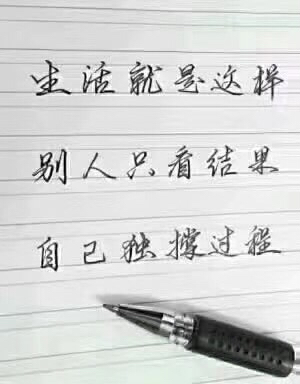 生活就是这样
别人只看结果
自己独撑过程